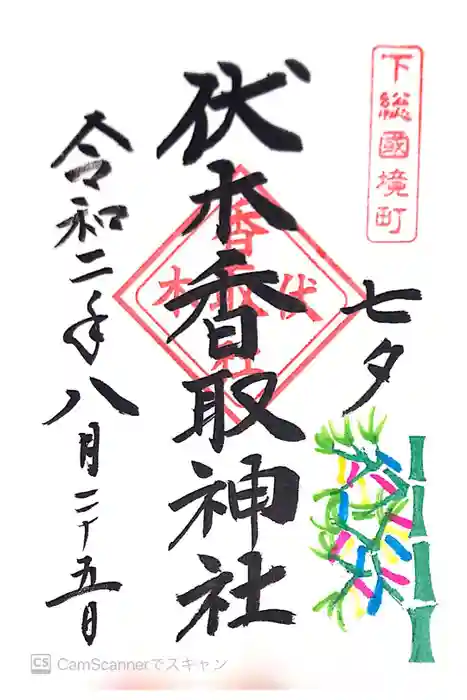 下総國境町
七夕
伏木香取神社
香取
伏木
社
令和二年八月二十五日
CS CamScannerでスキャン